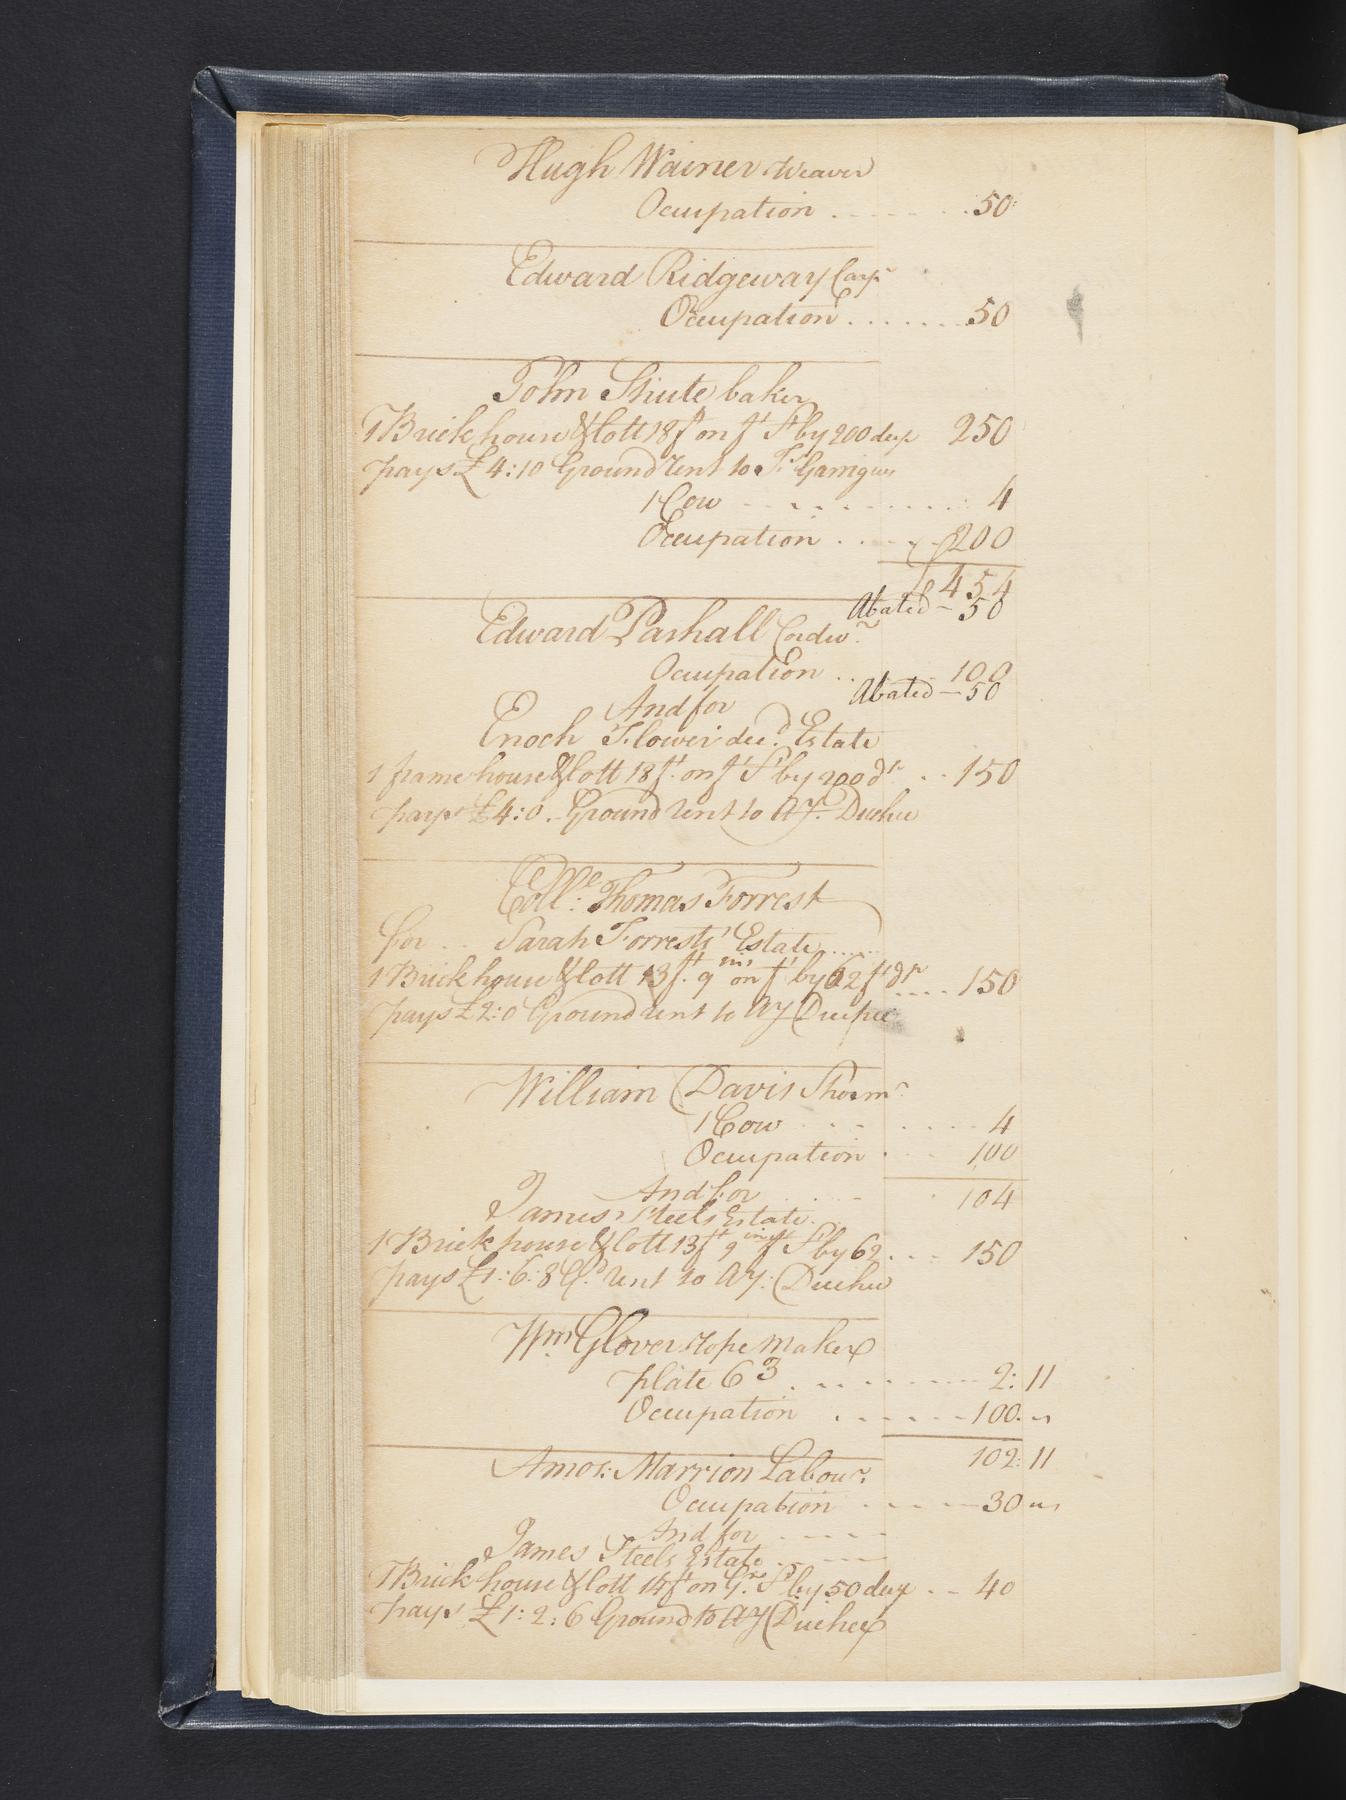 Hugh Wainer Weaver
Ocupation . . . . . . . 50
Edward Ridgeway Carpr
Ocupation . . . . . . . 50
John Shute baker
1 Brick house & lott 18 ft on ft St by 200 deep 250
pays £4:10 Ground Rent to Garrigues
1 Cow . . . . . . . 4
Ocupation . . . . 200
£454
Abated - 50
Edward Pashall Cordwr
Ocupation . . 100
Abated - 50
And for
Enoch Flower decd. Estate
1 frame house & lott 18 ft. on ft St by 200 dp . . 150
pays £4:0. Ground Rent to AJ. Duchee
Colle: Thomas Forrest
for . . Sarah Forrests' Estate . . . .
1 Brick house & lott 13 ft. 9 ins on ft by 62 ft dp . . . . 150
pays £2:0 Ground rent to AJ Duchee
William Davis Shoemr
1 Cow . . . . . . . 4
Ocupation . . . 100
And for . . . . 104
James Steels Estate.
1 Brick house & lott 13 ft 9 in ft St by 62 . . . 150
pays £1:6:8 Gd. Rent to AJ: Duchee
Wm Glover Rope Maker
plate 6 3 . . . . . . . 2:11
Ocupation . . . . . 100. "
102:11
Amos: Marrion Labour.
Ocupation . . . . 30 "
And for . . . .
James Steels Estate . . . .
1 Brick house & lott 14 ft on Gr. St by 50 deep . . 40
pays £1:2:6 Ground to AJ Duchee